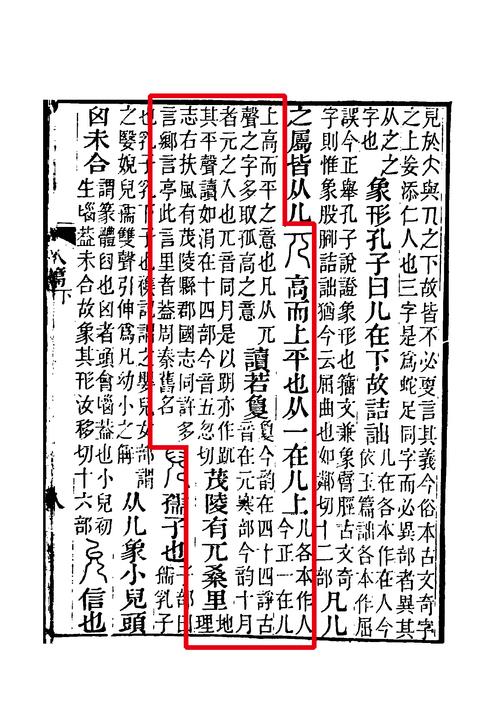 見於大與兀之下故皆不必叟言其義今俗本古文奇字
之上妄添仁人也三字是為蛇足同字而必異部者異其
从之之
字也
象形孔子曰儿在下故詰詘
儿在各本作在人今
依玉篇詘各本作屈
誤今正舉孔子說證象形也籀文兼象臂脛古文奇
字則惟象股腳詰詘猶今云屈曲也如鄰切十二部
凡儿
之屬皆从儿
兀高而上平也从一在儿上
儿各本作人
今正一在儿
上高而平之意也凡从兀
聲之字多取孤高之意
讀若敻
敻今韵在四十四諍古
音在元寒部今韵十月
者元之入也兀音同月是以跀亦作𧿁
其平聲讀如涓在十四部今音五忽切
茂陵有兀桑里
地
理
志右扶風有茂陵縣郡國志同許多
言鄉言亭此言里者葢周秦舊名
兒孺子也
子部曰
孺乳子
也乳子乳下子也襍記謂之嬰兒女部謂
之嫛婗兒孺雙聲引伸為凡幼小之稱
从儿象小兒頭
囟未合
謂篆體臼也囟者頭會匘葢也小兒初
生匘葢未合故象其形汝移切十六部
允信也
八篇下
八